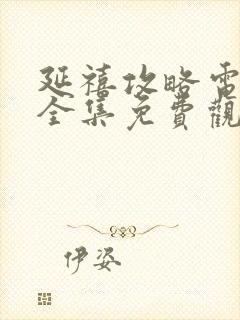 延禧攻略電
全集免費觀
伊姿